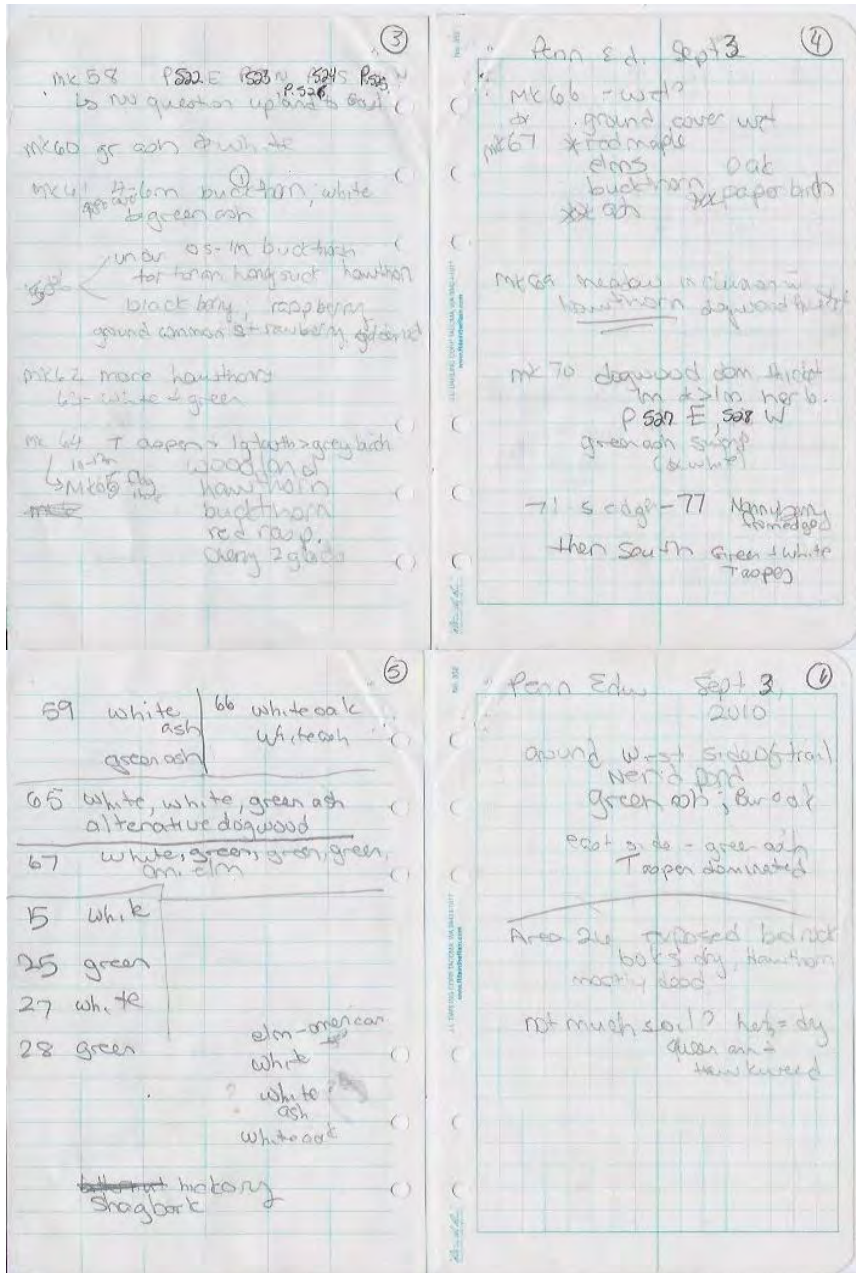 ③
mk 58 P522 E P523 N P524 S P525 N
P.526
↳ NW question upland to East
mk60 gr ash & white
①
mk61 4-6m buckthorn, white
& green ash
0.5-1m buckthorn
tartarian honeysuck hawthorn
black berry, raspberry
ground common strawberry, goldenrod
mk62 more hawthorn
63- white & green
mk 64 T aspen + lg tooth > grey birch
10-12m woodland
↳ Mk65 hawthorn
buckthorn
red rasp.
cherry
④
Penn Ed. Sept 3
Mk66 - wet?
& ground cover wet
mk67 *red maple
elms oak
buckthorn **paper birch
** ash
mk69 meadow inclusion in
hawthorn dogwood
mk 70 dogwood dom thicket
1m & >1m herb.
P 527 E, 528 W
green ash
(& white)
71 s edge - 77 Nannyberry
then South Green + white
T aspen
⑤
59 white ash
green ash
66 white oak
White ash
65 white, white, green ash
alternative dogwood
67 white, green, green, green,
am. elm
15 white
25 green
27 white
28 green
elm-american
white
? white?
ash
white oak
hickory
Shagbark
⑥
Penn Edw Sept 3,
2010
around West side of trail
Nerid pond
green ash; Bur oak
east side - green ash
T aspen dominated
Area 26 exposed bedrock
looks dry, Hawthorn
mostly dead
not much soil? herb = dry
queen ann +
Hawkweed